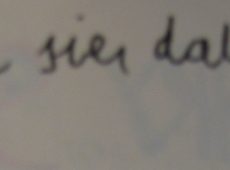 się dal